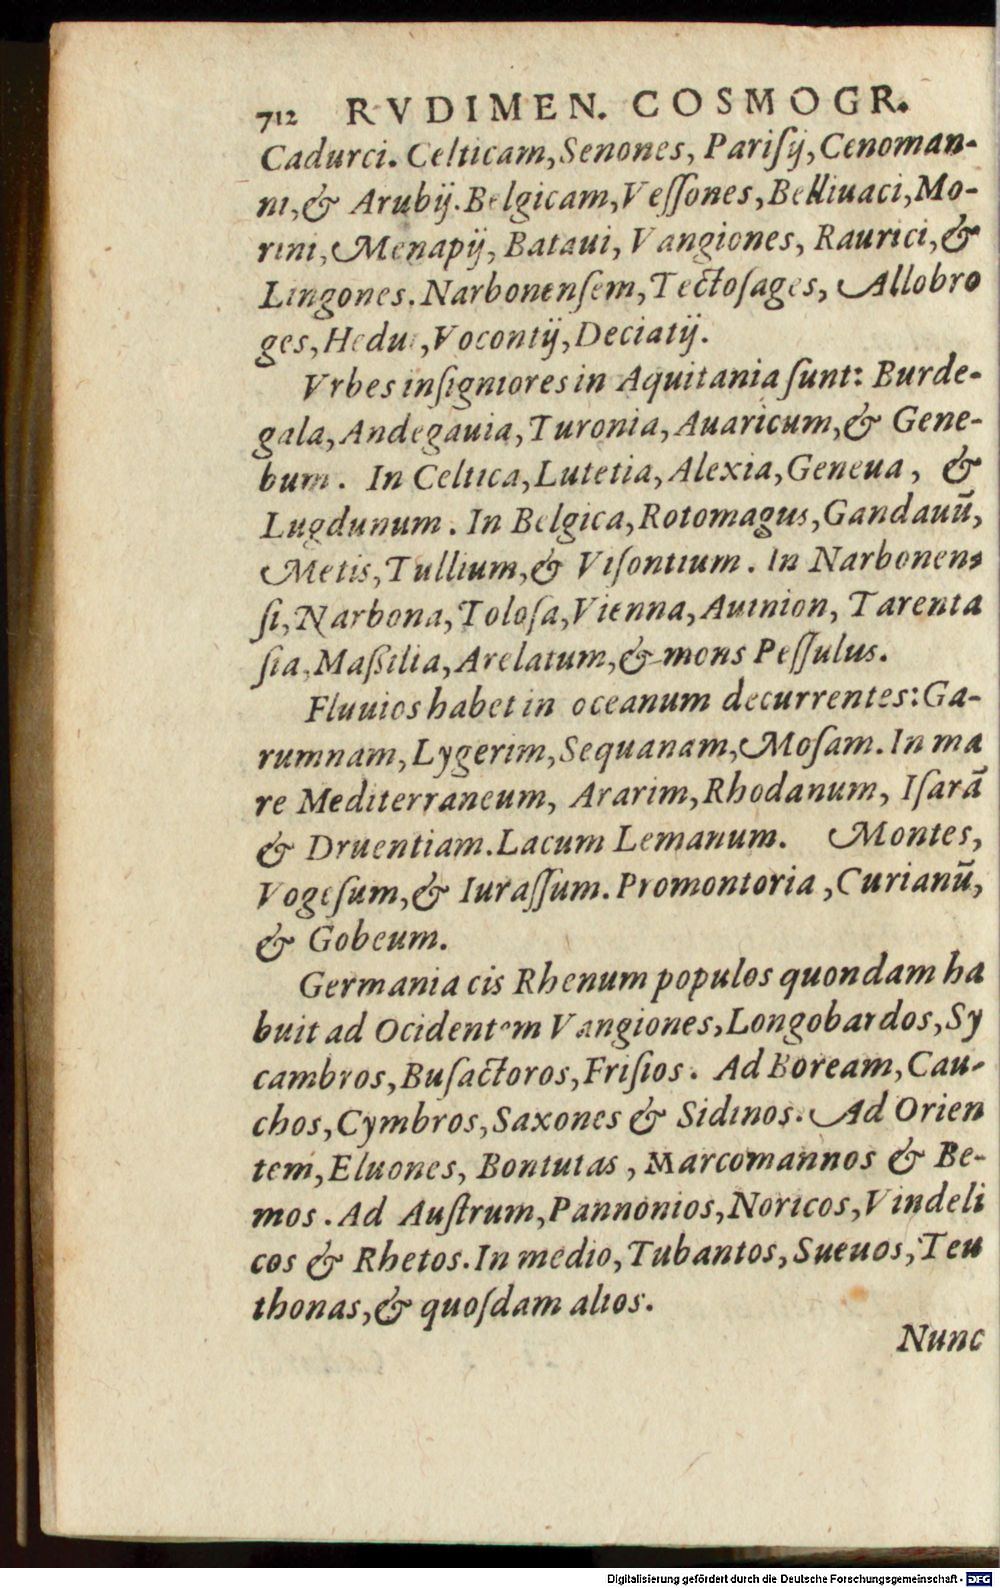 712 RVDIMEN. COSMOGR.
Cadurci. Celticam, Senones, Pariſij, Cenoman-
ni, & Arubij. Belgicam, Veſſones, Belliuaci, Mo-
rini, Menapij, Bataui, Vangiones, Raurici, &
Lingones. Narbonenſem, Tectoſages, Allobro
ges, Hedui, Vocontij, Deciatij.
Vrbes inſigniores in Aquitania ſunt: Burde-
gala, Andegauia, Turonia, Auaricum, & Gene-
bum. In Celtica, Lutetia, Alexia, Geneua, &
Lugdunum. In Belgica, Rotomagus, Gandauū,
Metis, Tullium, & Viſontium. In Narbonen-
ſi, Narbona, Toloſa, Vienna, Auinion, Tarenta
ſia, Maßilia, Arelatum, & mons Peſſulus.
Fluuios habet in oceanum decurrentes: Ga-
rumnam, Lygerim, Sequanam, Moſam. In ma
re Mediterraneum, Ararim, Rhodanum, Iſarā
& Druentiam. Lacum Lemanum. Montes,
Vogeſum, & Iuraſſum. Promontoria, Curianū,
& Gobeum.
Germania cis Rhenum populos quondam ha
buit ad Ocidentem Vangiones, Longobardos, Sy
cambros, Buſactoros, Friſios. Ad Boream, Cau-
chos, Cymbros, Saxones & Sidinos. Ad Orien
tem, Eluones, Bontutas, Marcomannos & Be-
mos. Ad Auſtrum, Pannonios, Noricos, Vindeli
cos & Rhetos. In medio, Tubantos, Sueuos, Teu
thonas, & quoſdam alios.
Nunc
Digitalisierung gefördert durch die Deutsche Forschungsgemeinschaft - DFG